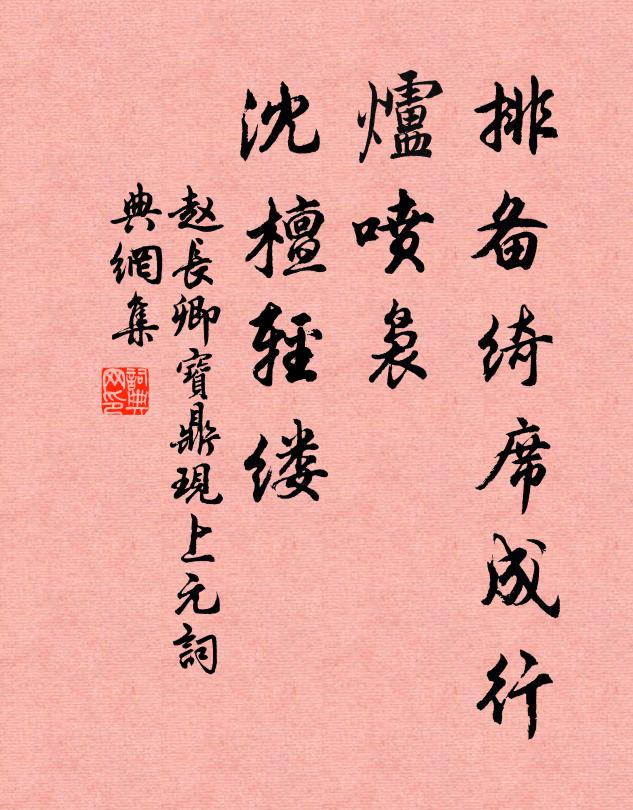 排备绮席成行
爐喷裊
沈檀轻缕
赵長卿寶鼎現上元詞
典網集
詞典
网印